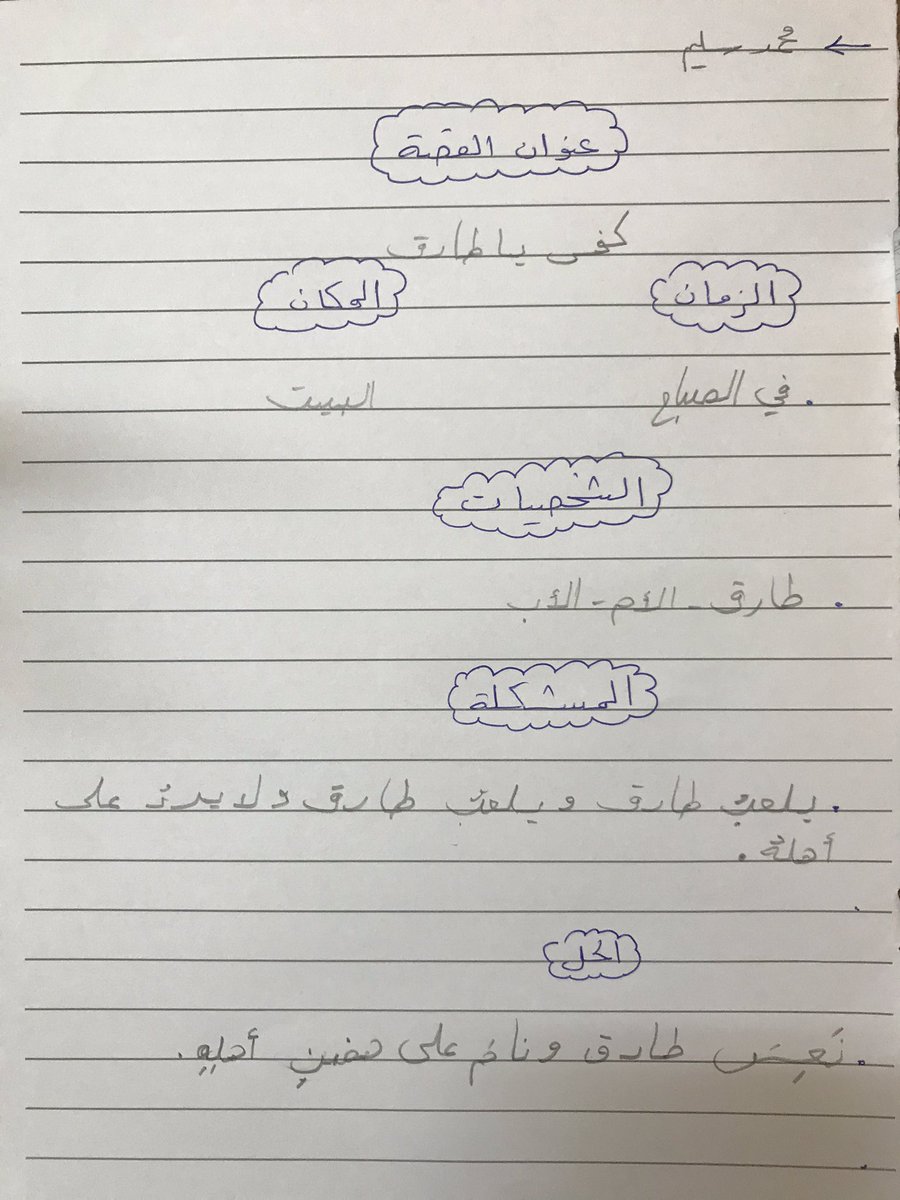 ← محمد سليم
عنوان القصة
كفى يا طارق
الزمان المكان
. في الصباح البيت
الشخصيات
. طارق - الأم - الأب
المشكلة
. يلعبُ طارق ويلعبُ طارق ولا يردُ على
أهلهُ .
الحل
. نَعِسَ طارق ونامَ على حضنِ أهلِهِ .